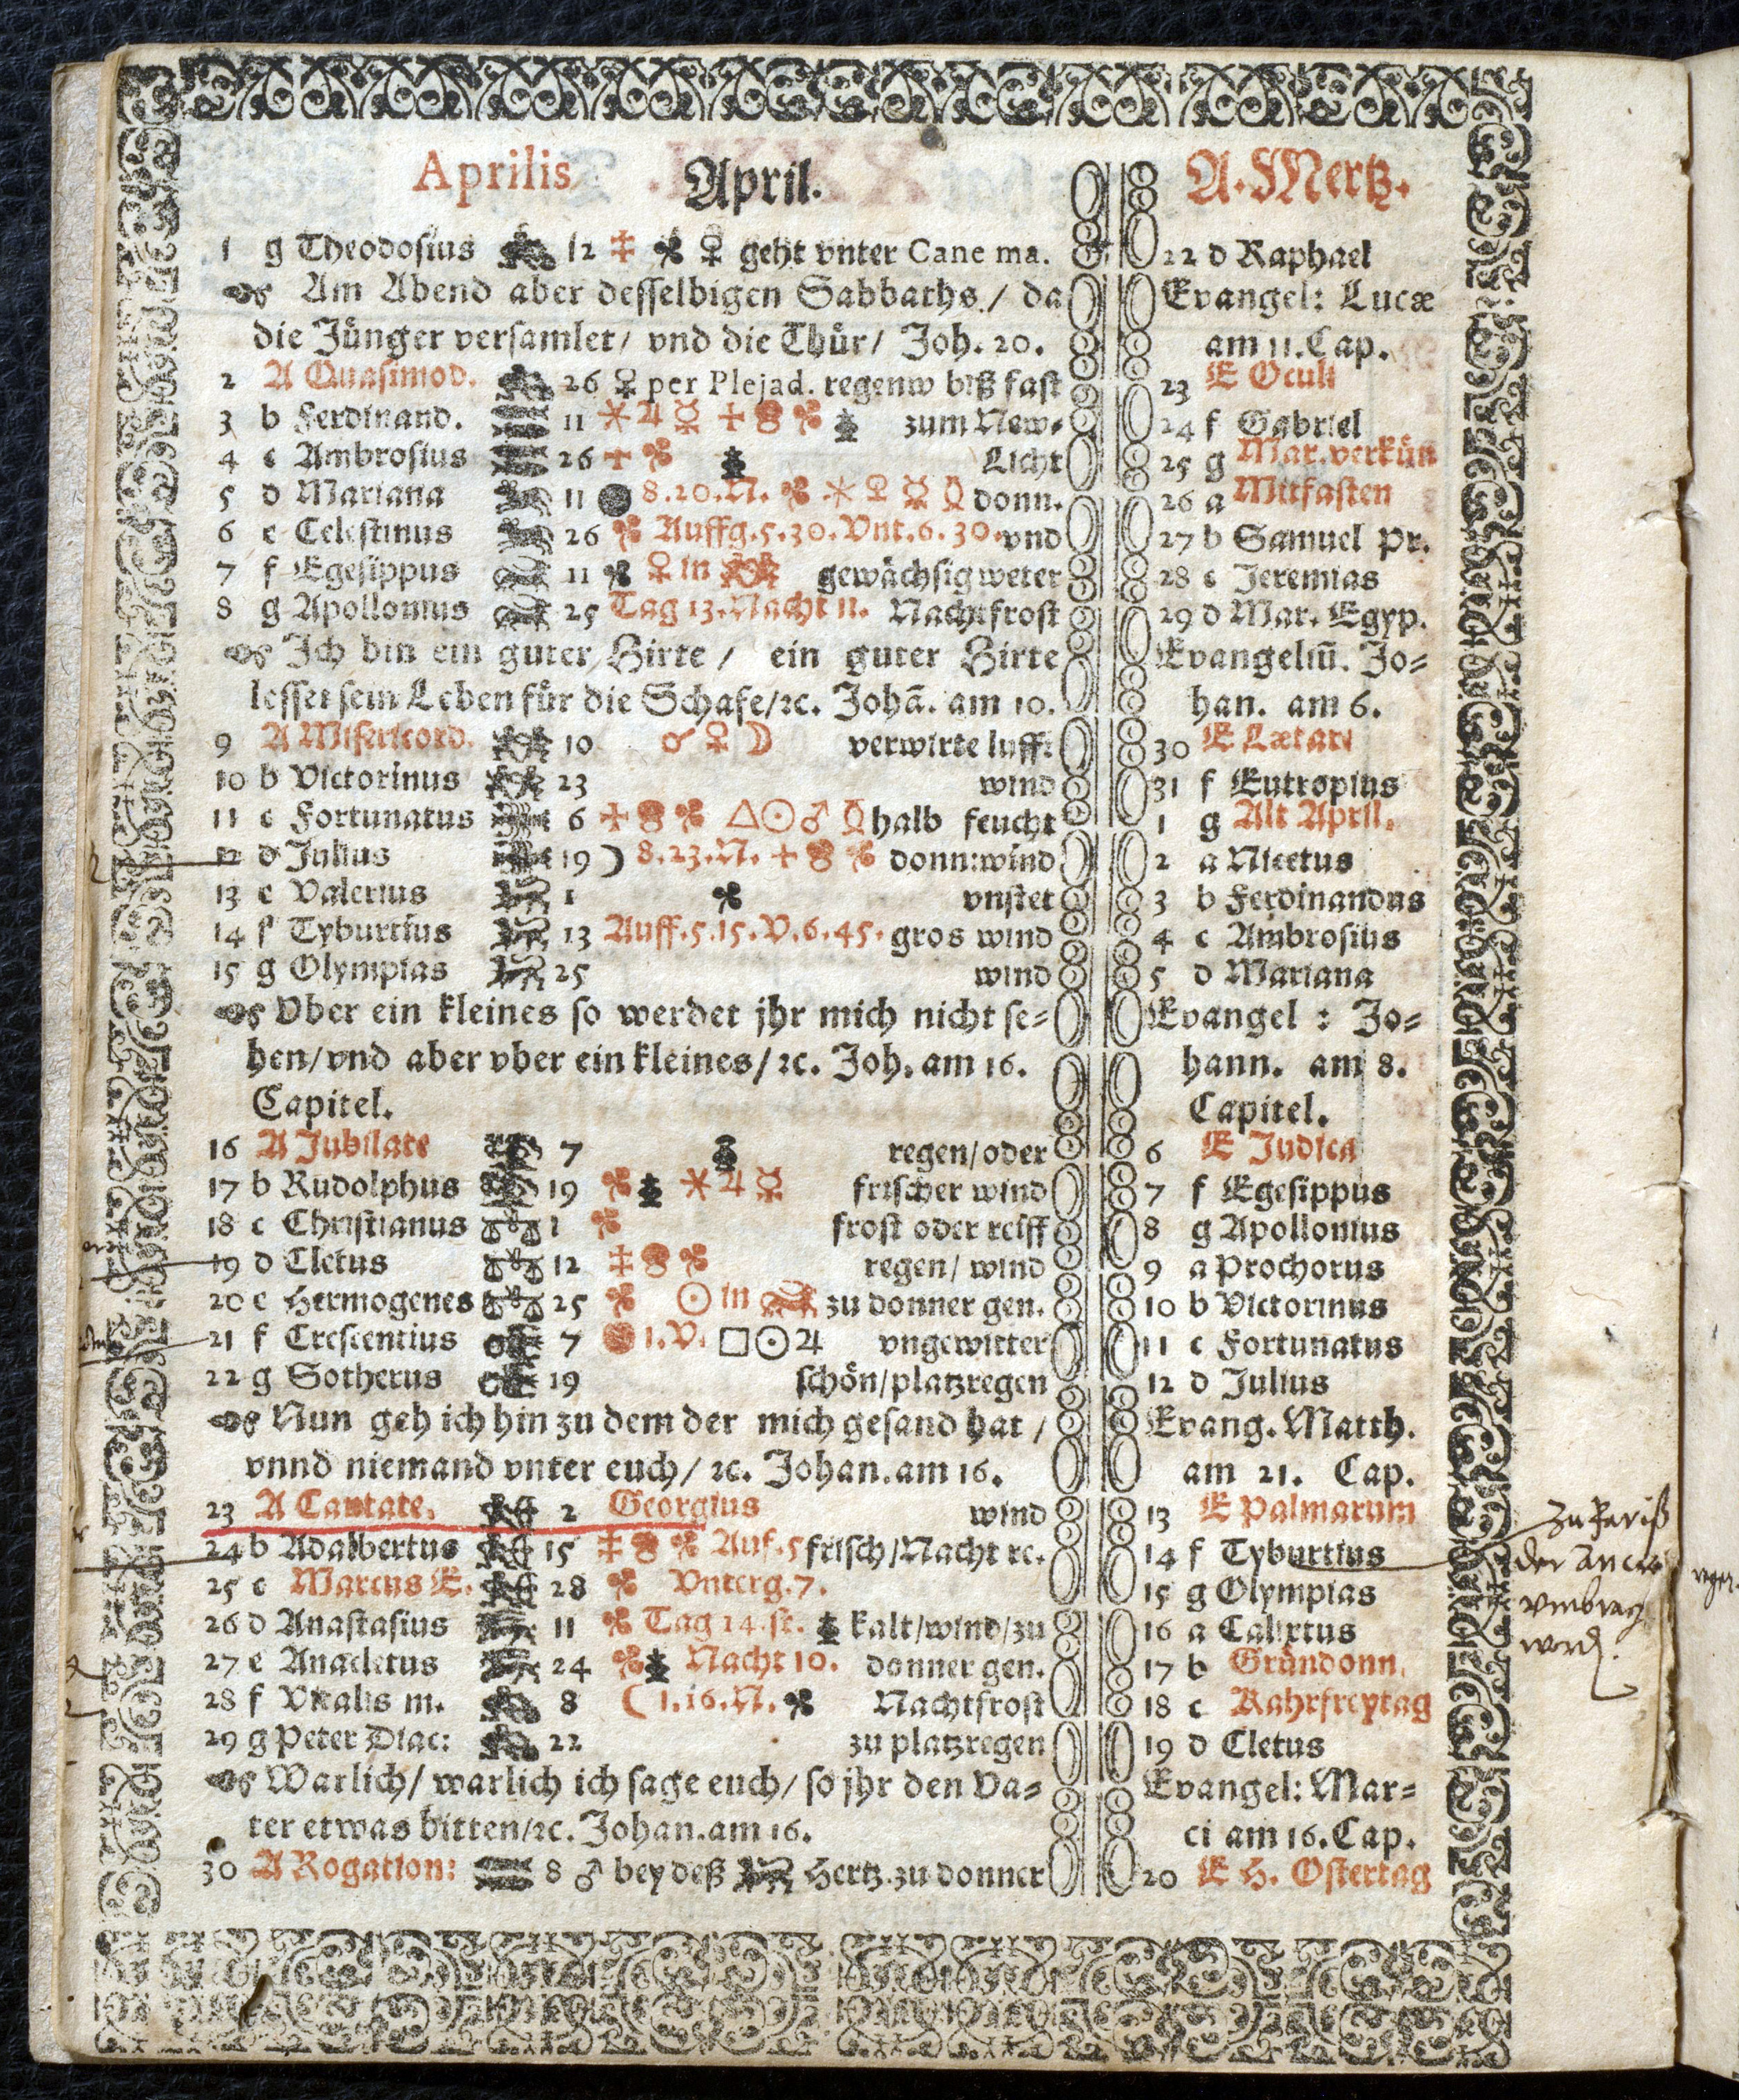 Aprilis April. A. Mertz.
1 g Theodosius 12 ♀ geht vnter Cane ma. 22 d Raphael
Am Abend aber desselbigen Sabbaths / da Evangel: Lucæ
die Jünger versamlet / vnd die Thür / Joh. 20. am 11. Cap.
2 A Quasimod. 26 ♀ per Plejad. regenw biß fast 23 E Oculi
3 b Ferdinand. 11 ⚹ ♃ ☿ zum New- 24 f Gabriel
4 c Ambrosius 26 Licht 25 g Mar. verkün
5 d Mariana 11 8.20.N. ⚹ ♀ ☿ donn. 26 a Mitfasten
6 e Celestinus 26 Auffg. 5.30. Vnt. 6.30. vnd 27 b Samuel Pr.
7 f Egesippus 11 ♀ in gewächsig weter 28 c Jeremias
8 g Apollonius 25 Tag 13. Nacht 11. Nachtfrost 29 d Mar. Egyp.
Ich bin ein guter Hirte / ein guter Hirte Evangeliū. Jo=
lesset sein Leben für die Schafe/ꝛc. Johā. am 10. han. am 6.
9 A Misericord. 10 ☌ ♀ ☽ verwirte lufft 30 E Lætare
10 b Victorinus 23 wind 31 f Eutropius
11 c Fortunatus 6 △ ☉ ♂ halb feucht 1 g Alt April.
12 d Julius 19 ) 8.23.N. donn: wind 2 a Nicetus
13 e Valerius 1 vnstet 3 b Ferdinandus
14 f Tyburtius 13 Auff. 5.15. V. 6.45. gros wind 4 c Ambrosius
15 g Olympias 25 wind 5 d Mariana
Vber ein kleines so werdet jhr mich nicht se= Evangel : Jo=
hen/vnd aber vber ein kleines/ꝛc. Joh. am 16. hann. am 8.
Capitel. Capitel.
16 A Jubilate 7 regen/oder 6 E Judica
17 b Rudolphus 19 ⚹ ♃ ☿ frischer wind 7 f Egesippus
18 c Christianus 1 frost oder reiff 8 g Apollonius
19 d Cletus 12 regen/ wind 9 a Prochorus
20 e Hermogenes 25 ☉ in zu donner gen. 10 b Victorinus
21 f Crescentius 7 1.V. □ ☉ ♃ vngewitter 11 c Fortunatus
22 g Sotherus 19 schön/platzregen 12 d Julius
Nun geh ich hin zu dem der mich gesand hat / Evang. Matth.
vnnd niemand vnter euch/ ꝛc. Johan. am 16. am 21. Cap.
23 A Cantate. 2 Georgius wind 13 E Palmarum
24 b Adalbertus 15 Auf. 5 frisch/Nacht re. 14 f Tyburtius
25 c Marcus E. 28 Vnterg. 7. 15 g Olympias
26 d Anastasius 11 Tag 14. st. kalt/wind/zu 16 a Calixtus
27 e Anacletus 24 Nacht 10. donner gen. 17 b Gründonn.
28 f Vitalis m. 8 ( 1.16.N. Nachtfrost 18 c Kahrfreytag
29 g Peter Diac: 22 zu platzregen 19 d Cletus
Warlich/ warlich ich sage euch/ so jhr den Va= Evangel: Mar=
ter etwas bitten/ꝛc. Johan. am 16. ci am 16. Cap.
30 A Rogation: 8 ♂ bey deß Hertz. zu donner 20 E H. Ostertag
zu Pariß
der